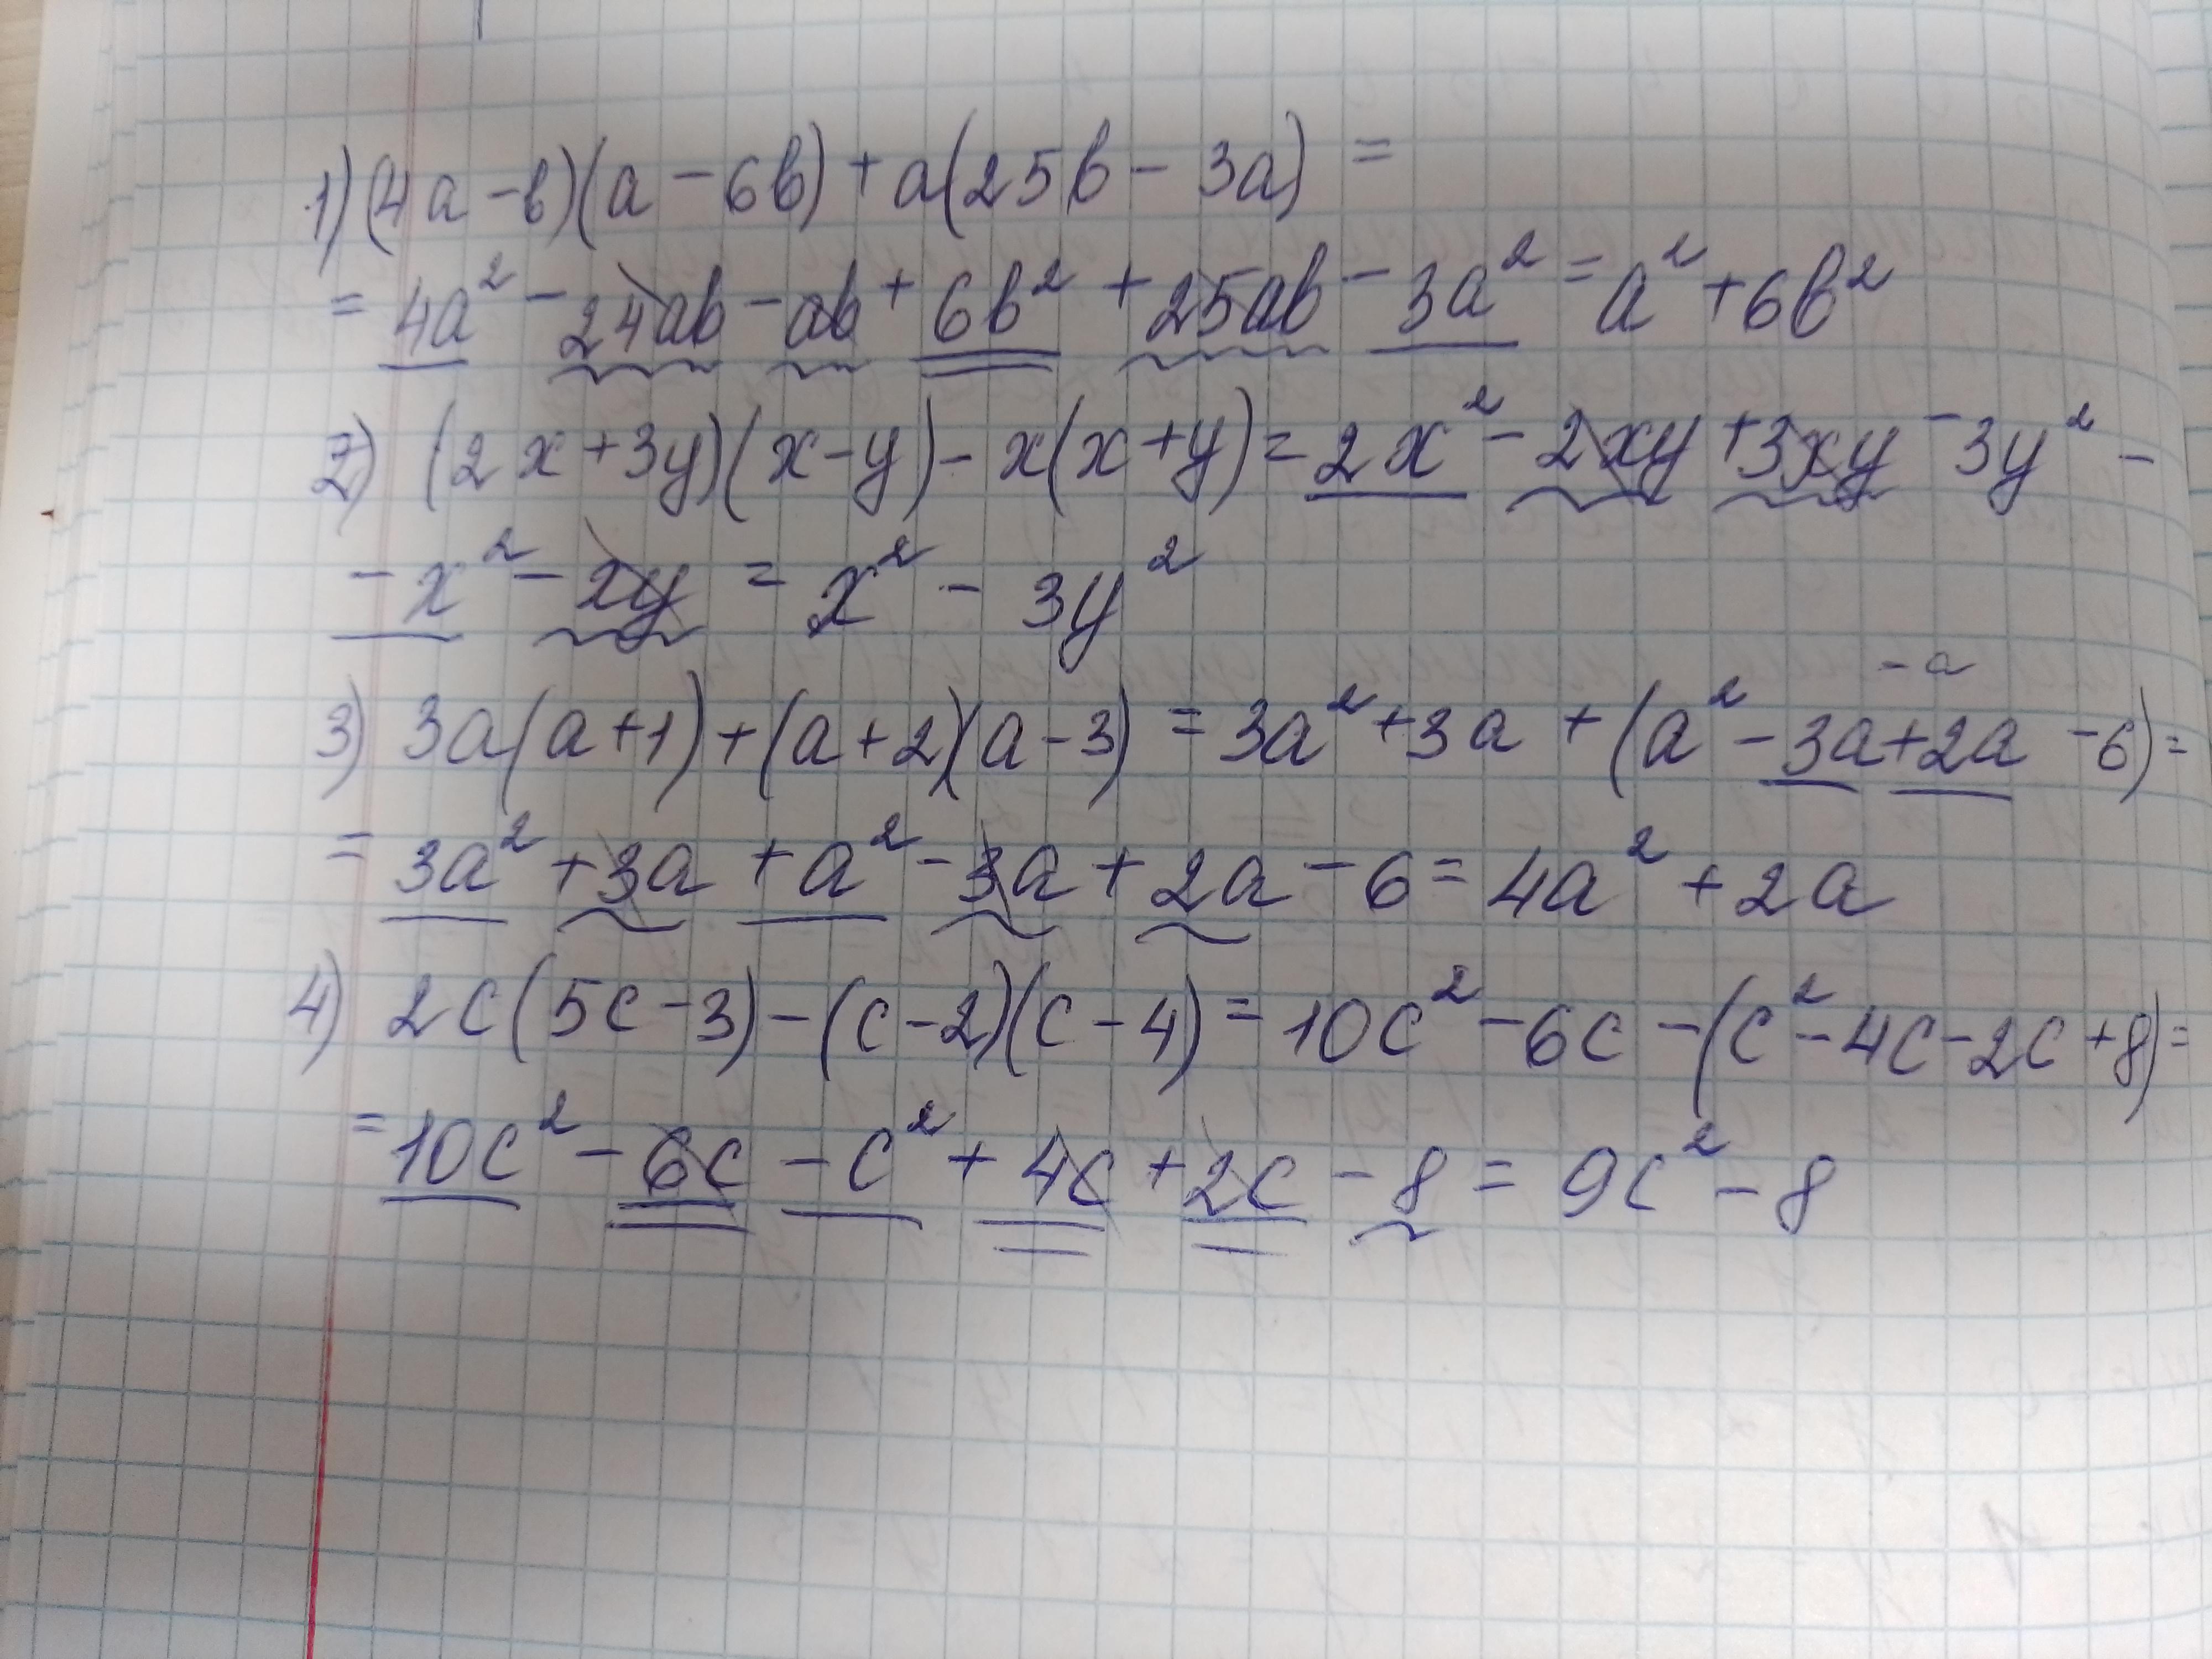 1) (4a-b)(a-6b)+a(25b-3a)=
=4a²-24ab-ab+6b²+25ab-3a²=a²+6b²
2) (2x+3y)(x-y)-x(x+y)=2x²-2xy+3xy-3y²-
-x²-xy=x²-3y²
-a
3) 3a(a+1)+(a+2)(a-3)=3a²+3a+(a²-3a+2a-6)=
=3a²+3a+a²-3a+2a-6=4a²+2a
4) 2c(5c-3)-(c-2)(c-4)=10c²-6c-(c²-4c-2c+8)=
=10c²-6c-c²+4c+2c-8=9c²-8